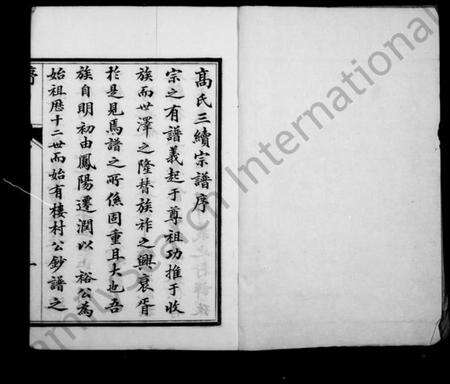 高氏三續宗譜序
宗之有譜義起于尊祖功推于收
族而世澤之隆替族祚之興衰胥
於是見焉譜之所係固重且大也吾
族自明初由鳳陽遷潤以 裕公為
始祖歷十二世而始有棲村公鈔譜之
序
FamilySearch International